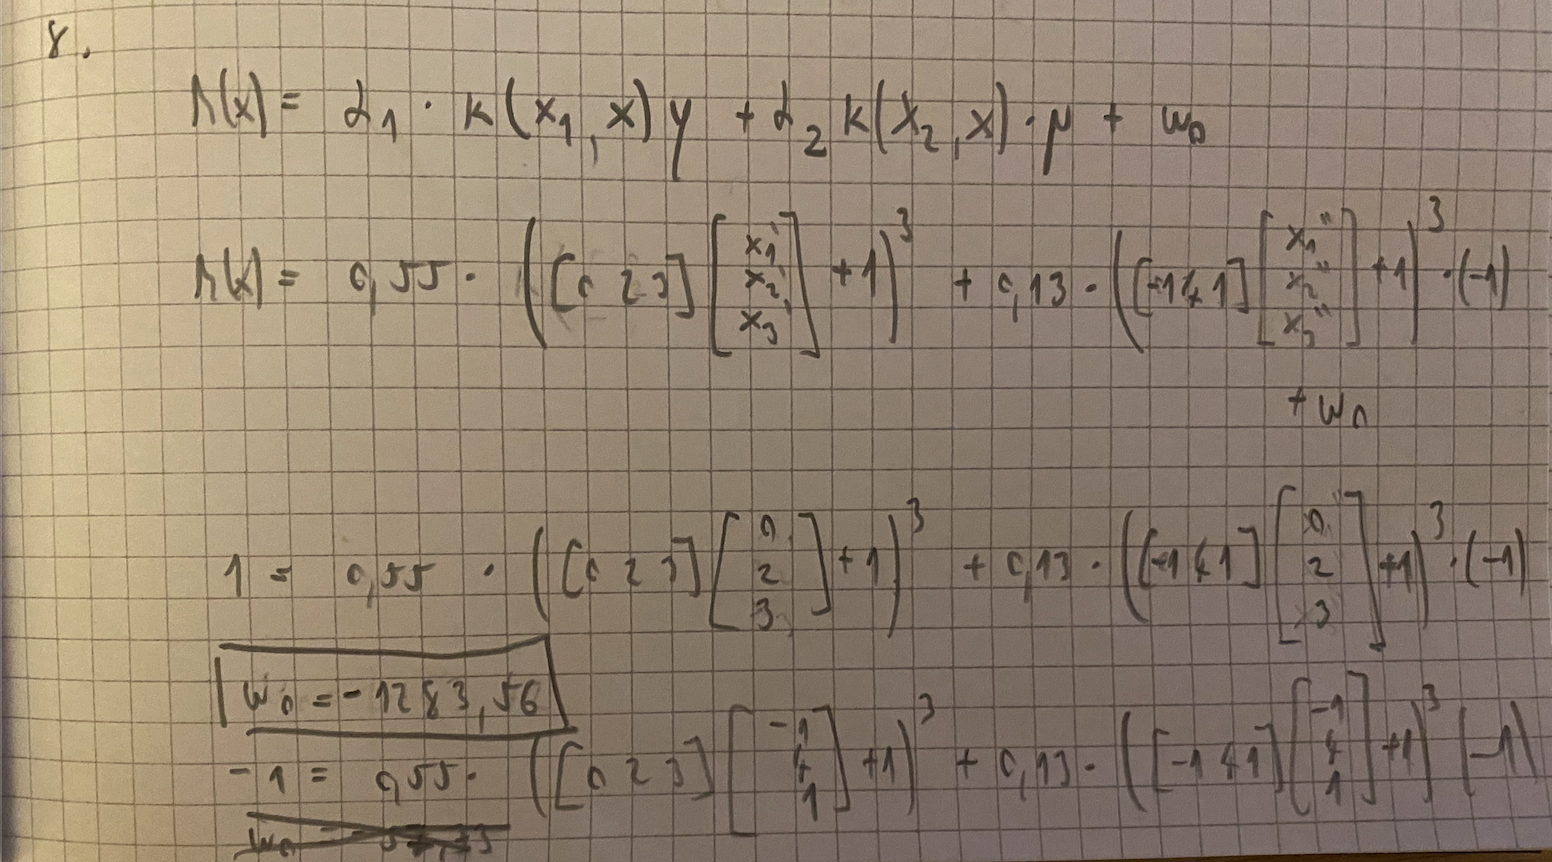 8.
h(x) = α₁ · k(x₁, x) y + α₂ k(x₂, x) · μ + w₀
h(x) = 0,55 · ([0 2 3] [x₁' x₂' x₃'] + 1)³ + 0,13 · ([-1 4 1] [x₁" x₂" x₃"] + 1)³ · (-1)
+ w₀
1 = 0,55 · ([0 2 3] [0 2 3] + 1)³ + 0,13 · ([-1 4 1] [0 2 3] + 1)³ · (-1)
w₀ = -1283,56
-1 = 0,55 · ([0 2 3] [-1 4 1] + 1)³ + 0,13 · ([-1 4 1] [-1 4 1] + 1)³ (-1)